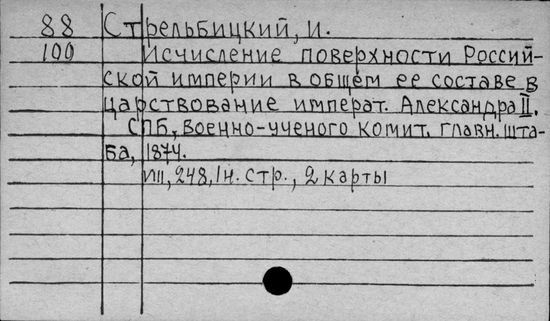 88 Стрельбицкий, И.
100 Исчисление поверхности Россий-
ской империи в общем ее составе в
царствование императ. Александра II.
СПБ, Военно-ученого комит. главн. шта-
ба, 1874.
VIII, 248, 1 н. стр., 2 карты